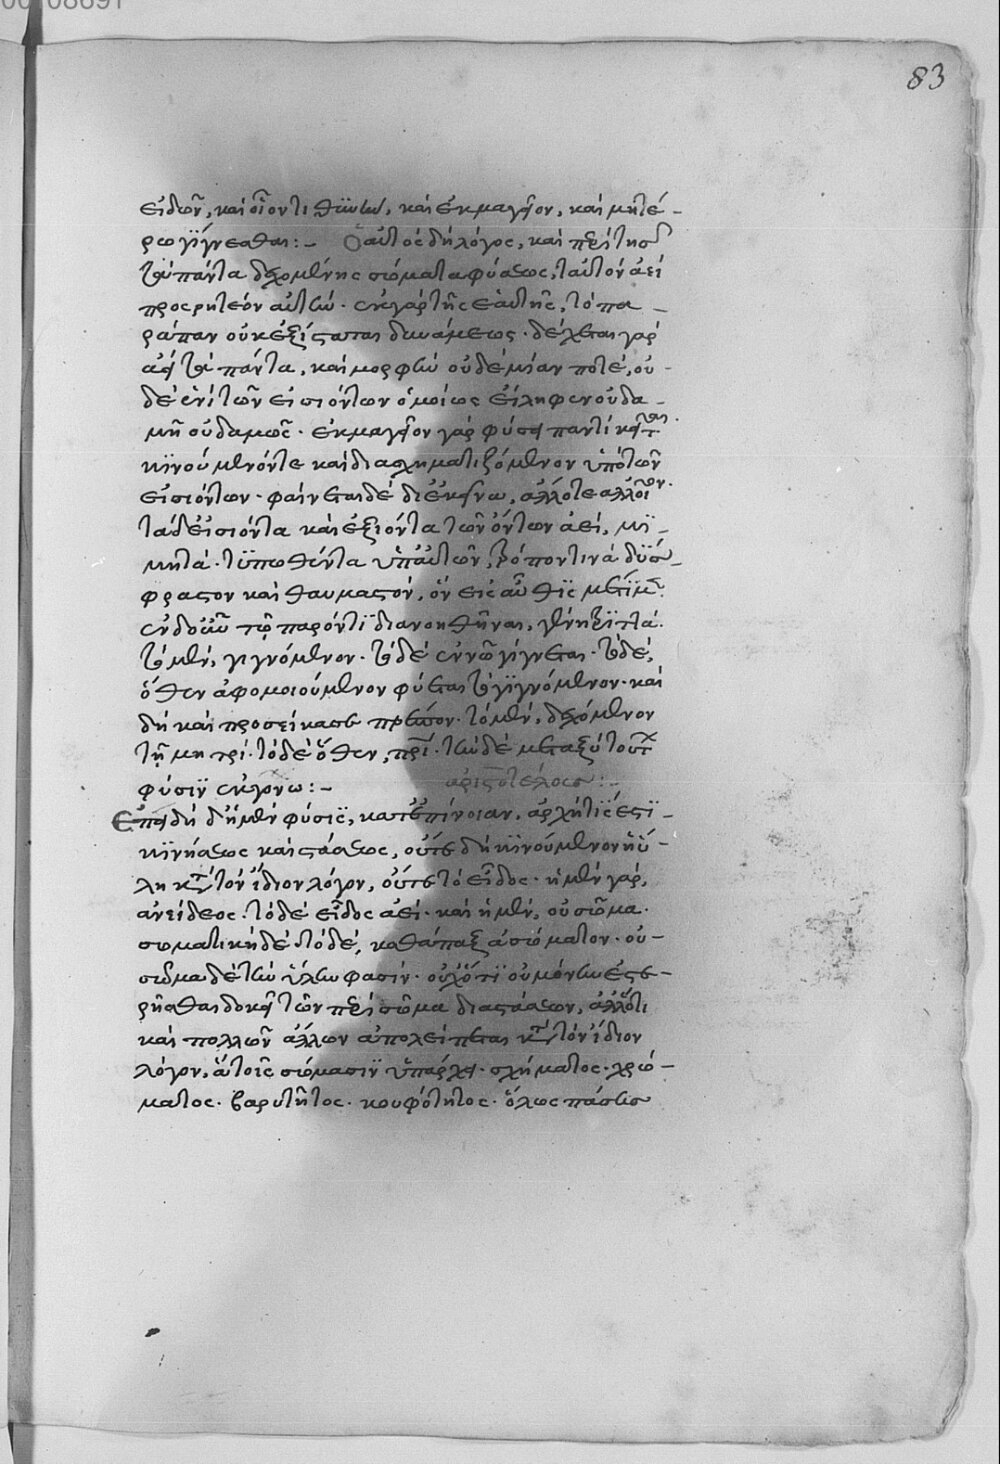 83
εἰδῶν, καὶ οἱονεὶ τιθήνην, καὶ ἐκμαγεῖον, καὶ μητέ-
ρα γίγνεσθαι:- Ὁ αὐτὸς δὴ λόγος, καὶ περὶ τῆς
τὰ πάντα δεχομένης σώματα φύσεως, ταυτὸν ἀεὶ
προσρητέον αὐτήν· ἐκ γὰρ τῆς ἑαυτῆς, τὸ πα-
ράπαν οὐκ ἐξίσταται δυνάμεως· δέχεται γὰρ
ἀεὶ τὰ πάντα, καὶ μορφὴν οὐδεμίαν ποτέ, οὐ-
δενὶ τῶν εἰσιόντων ὁμοίως εἴληφεν οὐδα-
μῆ οὐδαμῶς· ἐκμαγεῖον γὰρ φύσει παντὶ κεῖται·
κινούμενόν τε καὶ διασχηματιζόμενον ὑπὸ τῶν
εἰσιόντων· φαίνεται δὲ δι' ἐκεῖνα, ἄλλοτε ἀλλοῖον·
τὰ δὲ εἰσιόντα καὶ ἐξιόντα τῶν ὄντων ἀεὶ, μι-
μητά· τυπωθέντα ὑπ' αὐτῶν, τρόπον τινὰ δύσ-
φραστον καὶ θαυμαστόν, ὃν εἰς αὖθις μέτιμεν·
ἐν δ' οὖν τῷ παρόντι διανοηθῆναι, γένη τριττά·
τὸ μὲν, γιγνόμενον· τὸ δὲ ἐν ᾧ γίγνεται· τὸ δὲ,
ὅθεν ἀφομοιούμενον φύεται τὸ γιγνόμενον· καὶ
δὴ καὶ προσεικάσαι πρέπον· τὸ μὲν, δεχόμενον
τῇ μητρί· τὸ δὲ ὅθεν, πατρί· τὴν δὲ μεταξὺ τούτων
φύσιν ἐκγόνω:- ἀριστοτέλους:-
Ἐπειδὴ δὴ μὲν φύσις, κατ' ἐπίνοιαν, ἀρχή τις ἐστι-
κινήσεως καὶ στάσεως, οὔτε δὴ κινούμενον ἡ ὕ-
λη κατὰ τὸν ἴδιον λόγον, οὔτε τὸ εἶδος· ἡ μὲν γάρ,
ἀνείδεος· τὸ δὲ εἶδος ἀεί· καὶ ἡ μὲν, οὐ σῶμα·
σωματικὴ δὲ· τὸ δέ, καθάπαξ ἀσώματον· οὐ-
σῶμα δὲ τὴν ὕλην φασίν· οὐχ ὅτι οὐ μόνων ἐστε-
ρῆσθαι δοκεῖ τῶν περὶ σῶμα διαστάσεων, ἀλλ' ὅτι
καὶ πολλῶν ἄλλων ἀπολείπεται κατὰ τὸν ἴδιον
λόγον, ἃ τοῖς σώμασιν ὑπάρχει· σχήματος· χρώ-
ματος· βαρύτητος· κουφότητος· ὅλως πάσης